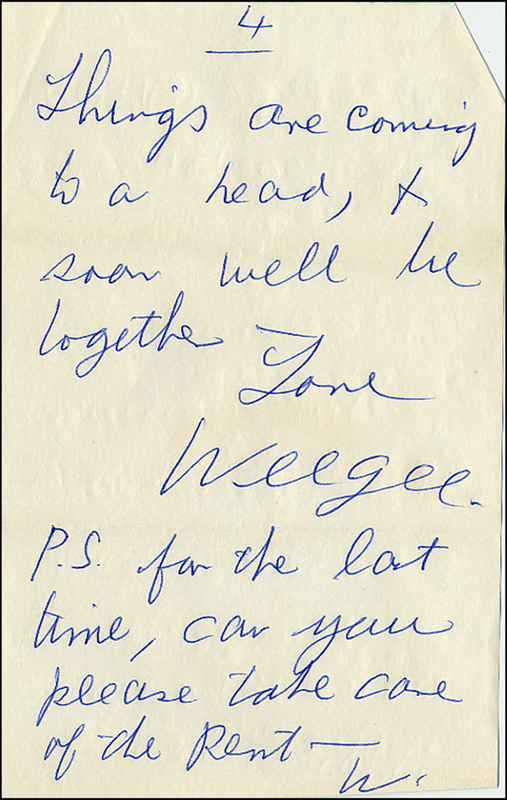 4
Things are coming
to a head, &
soon well be
together —
Love
Weegee.
P.S. for the last
time, can you
please take care
of the Rent —
W.